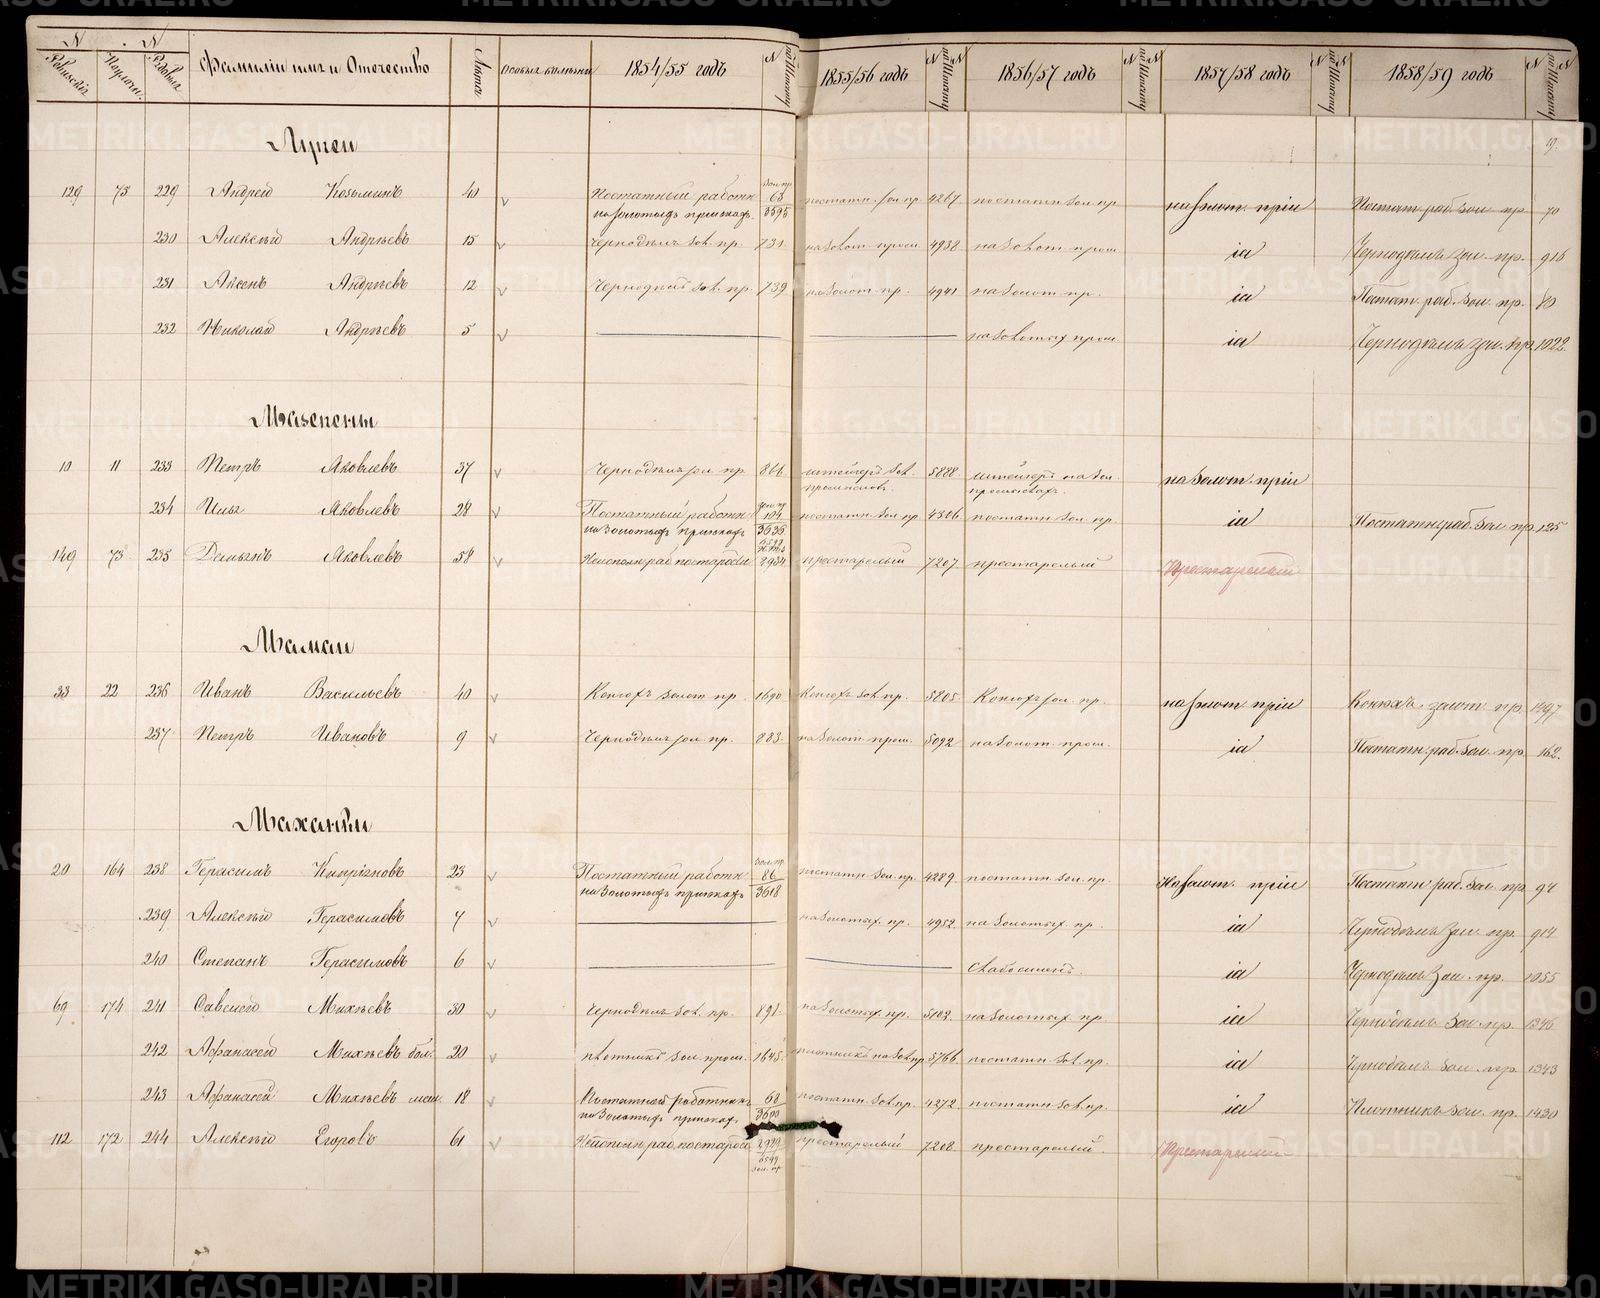 № Ревизскій
№ Поулочн.
№ Рабочих
Фамиліи имя и Отечество
Лѣта
1854/55 годъ
№ по Списку
1855/56 годъ
№ по Списку
1856/57 годъ
№ по Списку
1857/58 годъ
№ по Списку
1858/59 годъ
№ по Списку
9.
129 73 229 Андрей Козьминъ 40 Постатный работн. на золотыхъ приискахъ 63 3595 постатн. зол. пр. 4267 постатн. зол. пр. на золот. пріи Постат. раб. зол. пр. 70
230 Алексѣй Андреевъ 15 Чернодѣлъ зол. пр. 731 на золот. пром. 4938 на золот. пром. id Чернодѣлъ зол. пр. 916
231 Аксенъ Андреевъ 12 Чернодѣлъ зол. пр. 739 на золот. пр. 4941 на золот. пр. id Постат. раб. зол. пр. 80
232 Николай Андреевъ 5 на золотых пром. id Чернодѣлъ зол. пр. 1022
Мазепены
10 11 233 Петръ Яковлевъ 37 Чернодѣлъ зол. пр. 866 штейгеръ зол. промыслов. 5888 штейгеръ на зол. промыслах. на золот. пріи
234 Илья Яковлевъ 28 Постатный работн. на золотыхъ приискахъ 104 3636 постатн. зол. пр. 4306 постатн. зол. пр. id Постатн. раб. зол. пр. 125
149 73 235 Демьянъ Яковлевъ 58 Неисполн. раб. по старости 2934 престарелый 7207 престарелый Престарелый
Мамаи
33 22 236 Иванъ Васильевъ 40 Конюхъ золот. пр. 1690 Конюхъ зол. пр. 5805 Конюхъ зол. пр. на золот. пріи Конюхъ золот. пр. 1497
237 Петръ Ивановъ 9 Чернодѣлъ зол. пр. 883 на золот. пром. 5092 на золот. пром. id Постатн. раб. зол. пр. 162.
Маханьки
20 164 238 Герасимъ Кипріяновъ 23 Постатный работн. на золотыхъ приискахъ зол. пр. 86 3618 постатн. зол. пр. 4289 постатн. зол. пр. на золот. пріи Постатн. раб. зол. пр. 94
239 Алексѣй Герасимовъ 7 на золотых. пр. 4952 на золотых. пр. id Чернодѣлъ зол. пр. 914
240 Степанъ Герасимовъ 6 id Чернодѣлъ зол. пр. 1055
69 174 241 Савелей Михѣевъ 30 Чернодѣлъ зол. пр. 891 на золотых. пр. 5102 на золотых пр. id Чернодѣлъ зол. пр. 1346
242 Афанасей Михѣевъ бол. 20 плотникъ зол. пром. 1645 плотникъ на зол. пр. 5766 постатн. зол. пр. id Чернодѣлъ зол. пр. 1343
243 Афанасей Михѣевъ мен. 18 Постатной работникъ на золотыхъ приискахъ 68 3600 постатн. зол. пр. 4272 постатн. зол. пр. id Плотникъ зол. пр. 1430
112 172 244 Алексѣй Егоровъ 61 Неисполн. раб. по старости 2929 6599 зол. пр. престарелый 7208 престарелый. Престарелый
METRIKI.GASO-URAL.RU